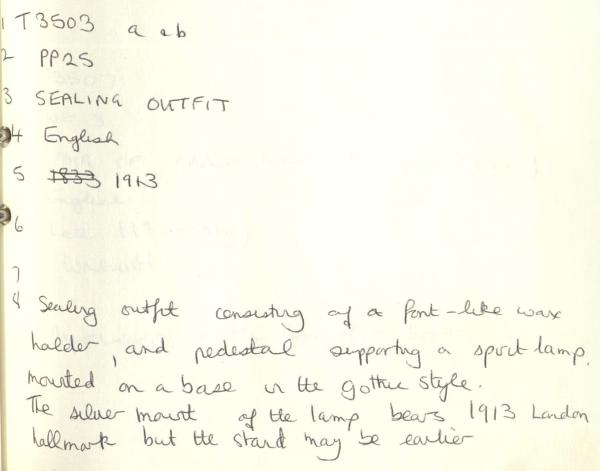 1 T3503 a & b
2 PP25
3 SEALING OUTFIT
4 English
5 1833 1913
6
7
8 Sealing outfit consisting of a font-like wax
holder, and pedestal supporting a spirit lamp,
mounted on a base in the gothic style.
The silver mount of the lamp bears 1913 London
hallmark but the stand may be earlier